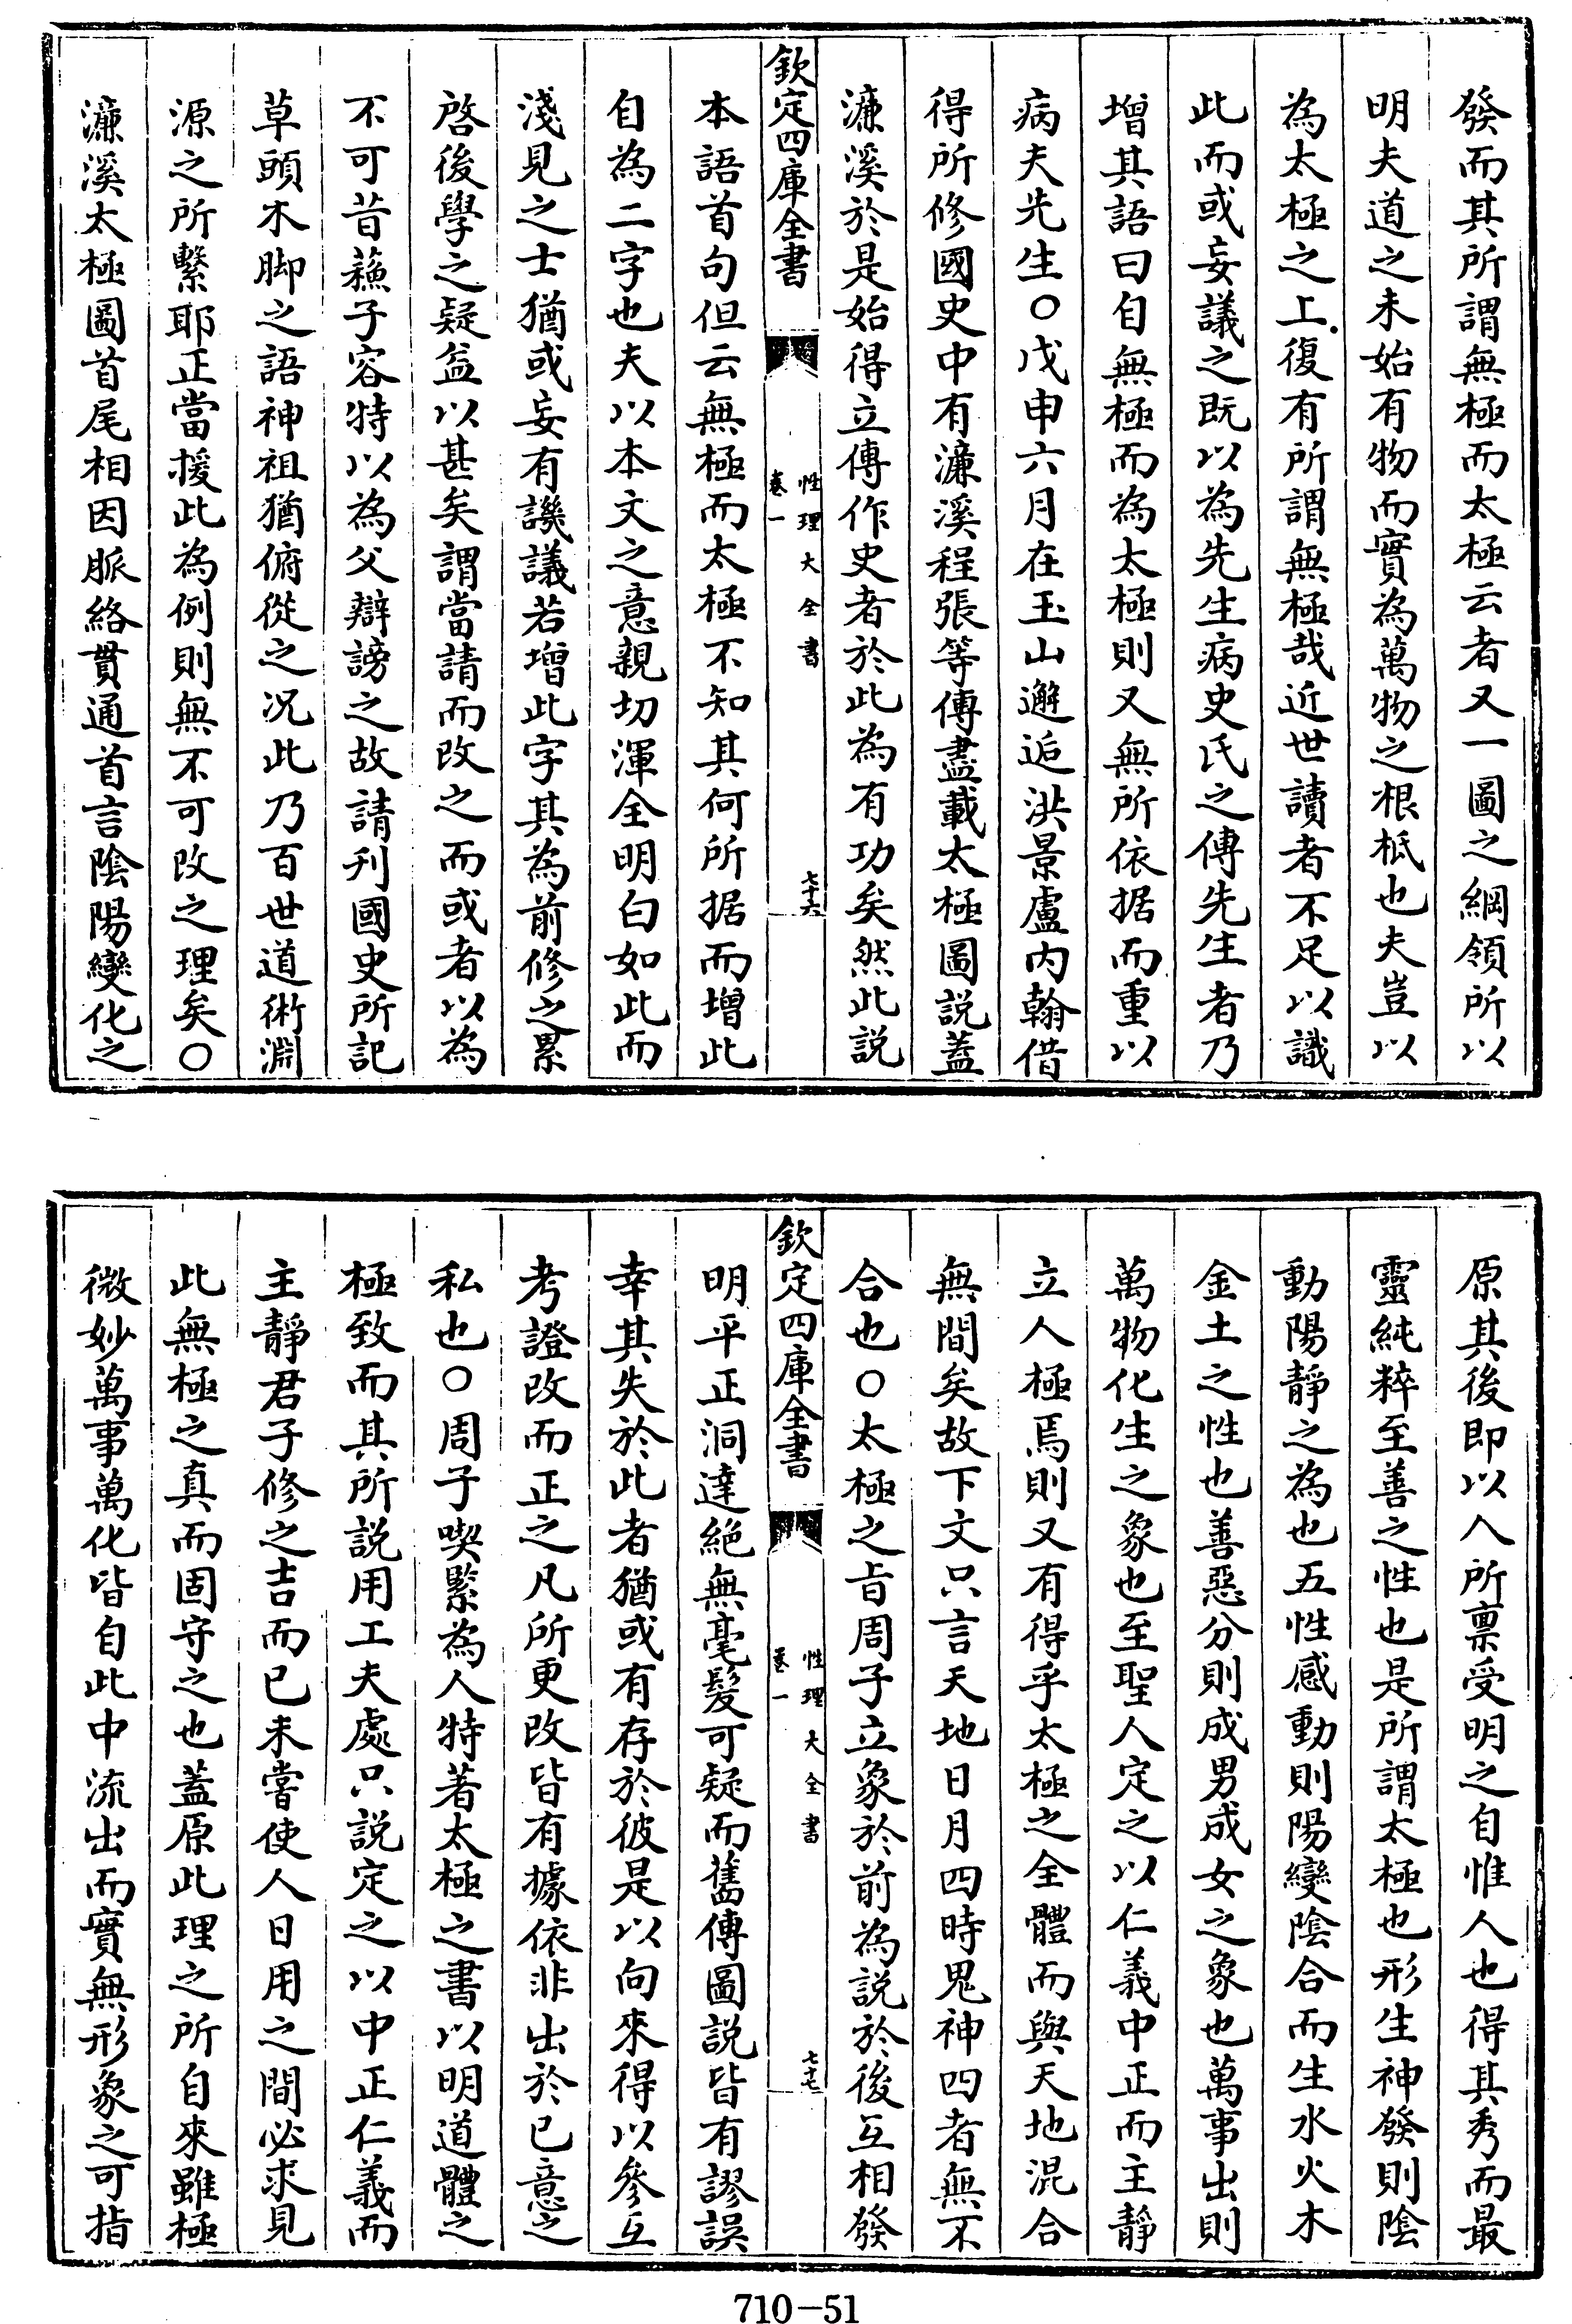 發而其所謂無極而太極云者又一圖之綱領所以
明夫道之未始有物而實為萬物之根柢也夫豈以
為太極之上復有所謂無極哉近世讀者不足以識
此而或妄議之既以為先生病史氏之傳先生者乃
增其語曰自無極而為太極則又無所依据而重以
病夫先生○戊申六月在玉山邂逅洪景盧内翰借
得所修國史中有濂溪程張等傳盡載太極圖説蓋
濂溪於是始得立傳作史者於此為有功矣然此説
欽定四庫全書
性理大全書
卷一
七十六
本語首句但云無極而太極不知其何所据而增此
自為二字也夫以本文之意親切渾全明白如此而
淺見之士猶或妄有譏議若增此字其為前修之累
啓後學之疑益以甚矣謂當請而改之而或者以為
不可昔蘇子容特以為父辯謗之故請刋國史所記
草頭木脚之語神祖猶俯從之况此乃百世道術淵
源之所繫耶正當援此為例則無不可改之理矣○
濂溪太極圖首尾相因脈絡貫通首言陰陽變化之
原其後即以人所禀受明之自惟人也得其秀而最
靈純粹至善之性也是所謂太極也形生神發則陰
動陽靜之為也五性感動則陽變陰合而生水火木
金土之性也善惡分則成男成女之象也萬事出則
萬物化生之象也至聖人定之以仁義中正而主靜
立人極焉則又有得乎太極之全體而與天地混合
無間矣故下文只言天地日月四時鬼神四者無不
合也○太極之旨周子立象於前為説於後互相發
欽定四庫全書
性理大全書
卷一
七十七
明平正洞達絶無毫髮可疑而舊傳圖説皆有謬誤
幸其失於此者猶或有存於彼是以向來得以參互
考證改而正之凡所更改皆有據依非出於已意之
私也○周子喫緊為人特著太極之書以明道體之
極致而其所説用工夫處只説定之以中正仁義而
主靜君子修之吉而已未嘗使人日用之間必求見
此無極之真而固守之也蓋原此理之所自來雖極
微妙萬事萬化皆自此中流出而實無形象之可指
710-51